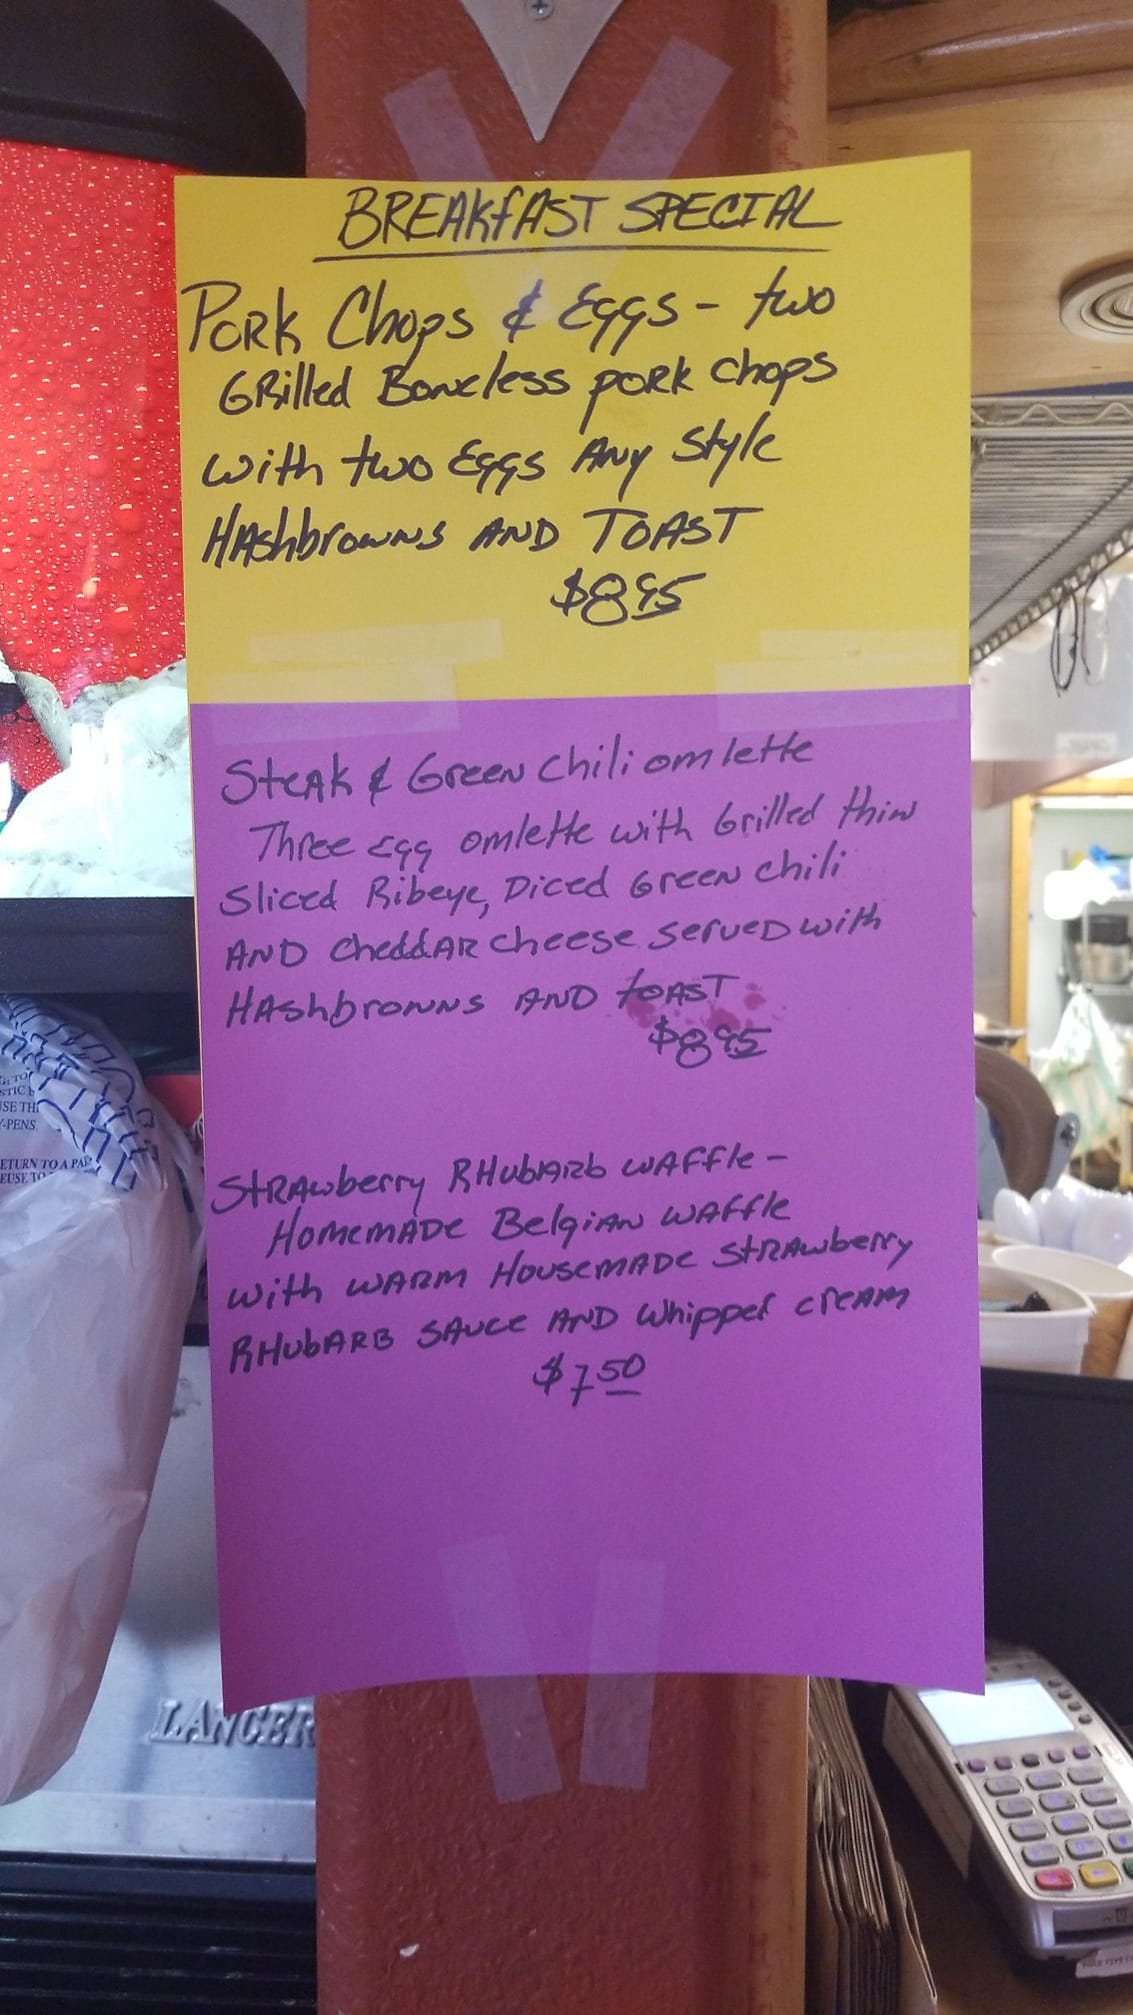 BREAKfAST SPECIAL
PORK Chops & Eggs - two
GRilled Boneless pork chops
with two Eggs ANy Style
HAshbrowns AND TOAST
$8 95
SteAk & GReeN Chili omlette
Three egg omlette with Grilled thin
Sliced Ribeye, Diced GreeN chili
AND CheddAR cheese served with
HAshbrowns AND toAST
$8 95
StRAwberry RHubARb WAffle -
HomemADe BelgiAN WAffle
with WARM HousemADe StRAwberry
RHubARB SAuce AND whipped creAM
$7 50
LANCER
STIC
-PENS
ETURN TO A